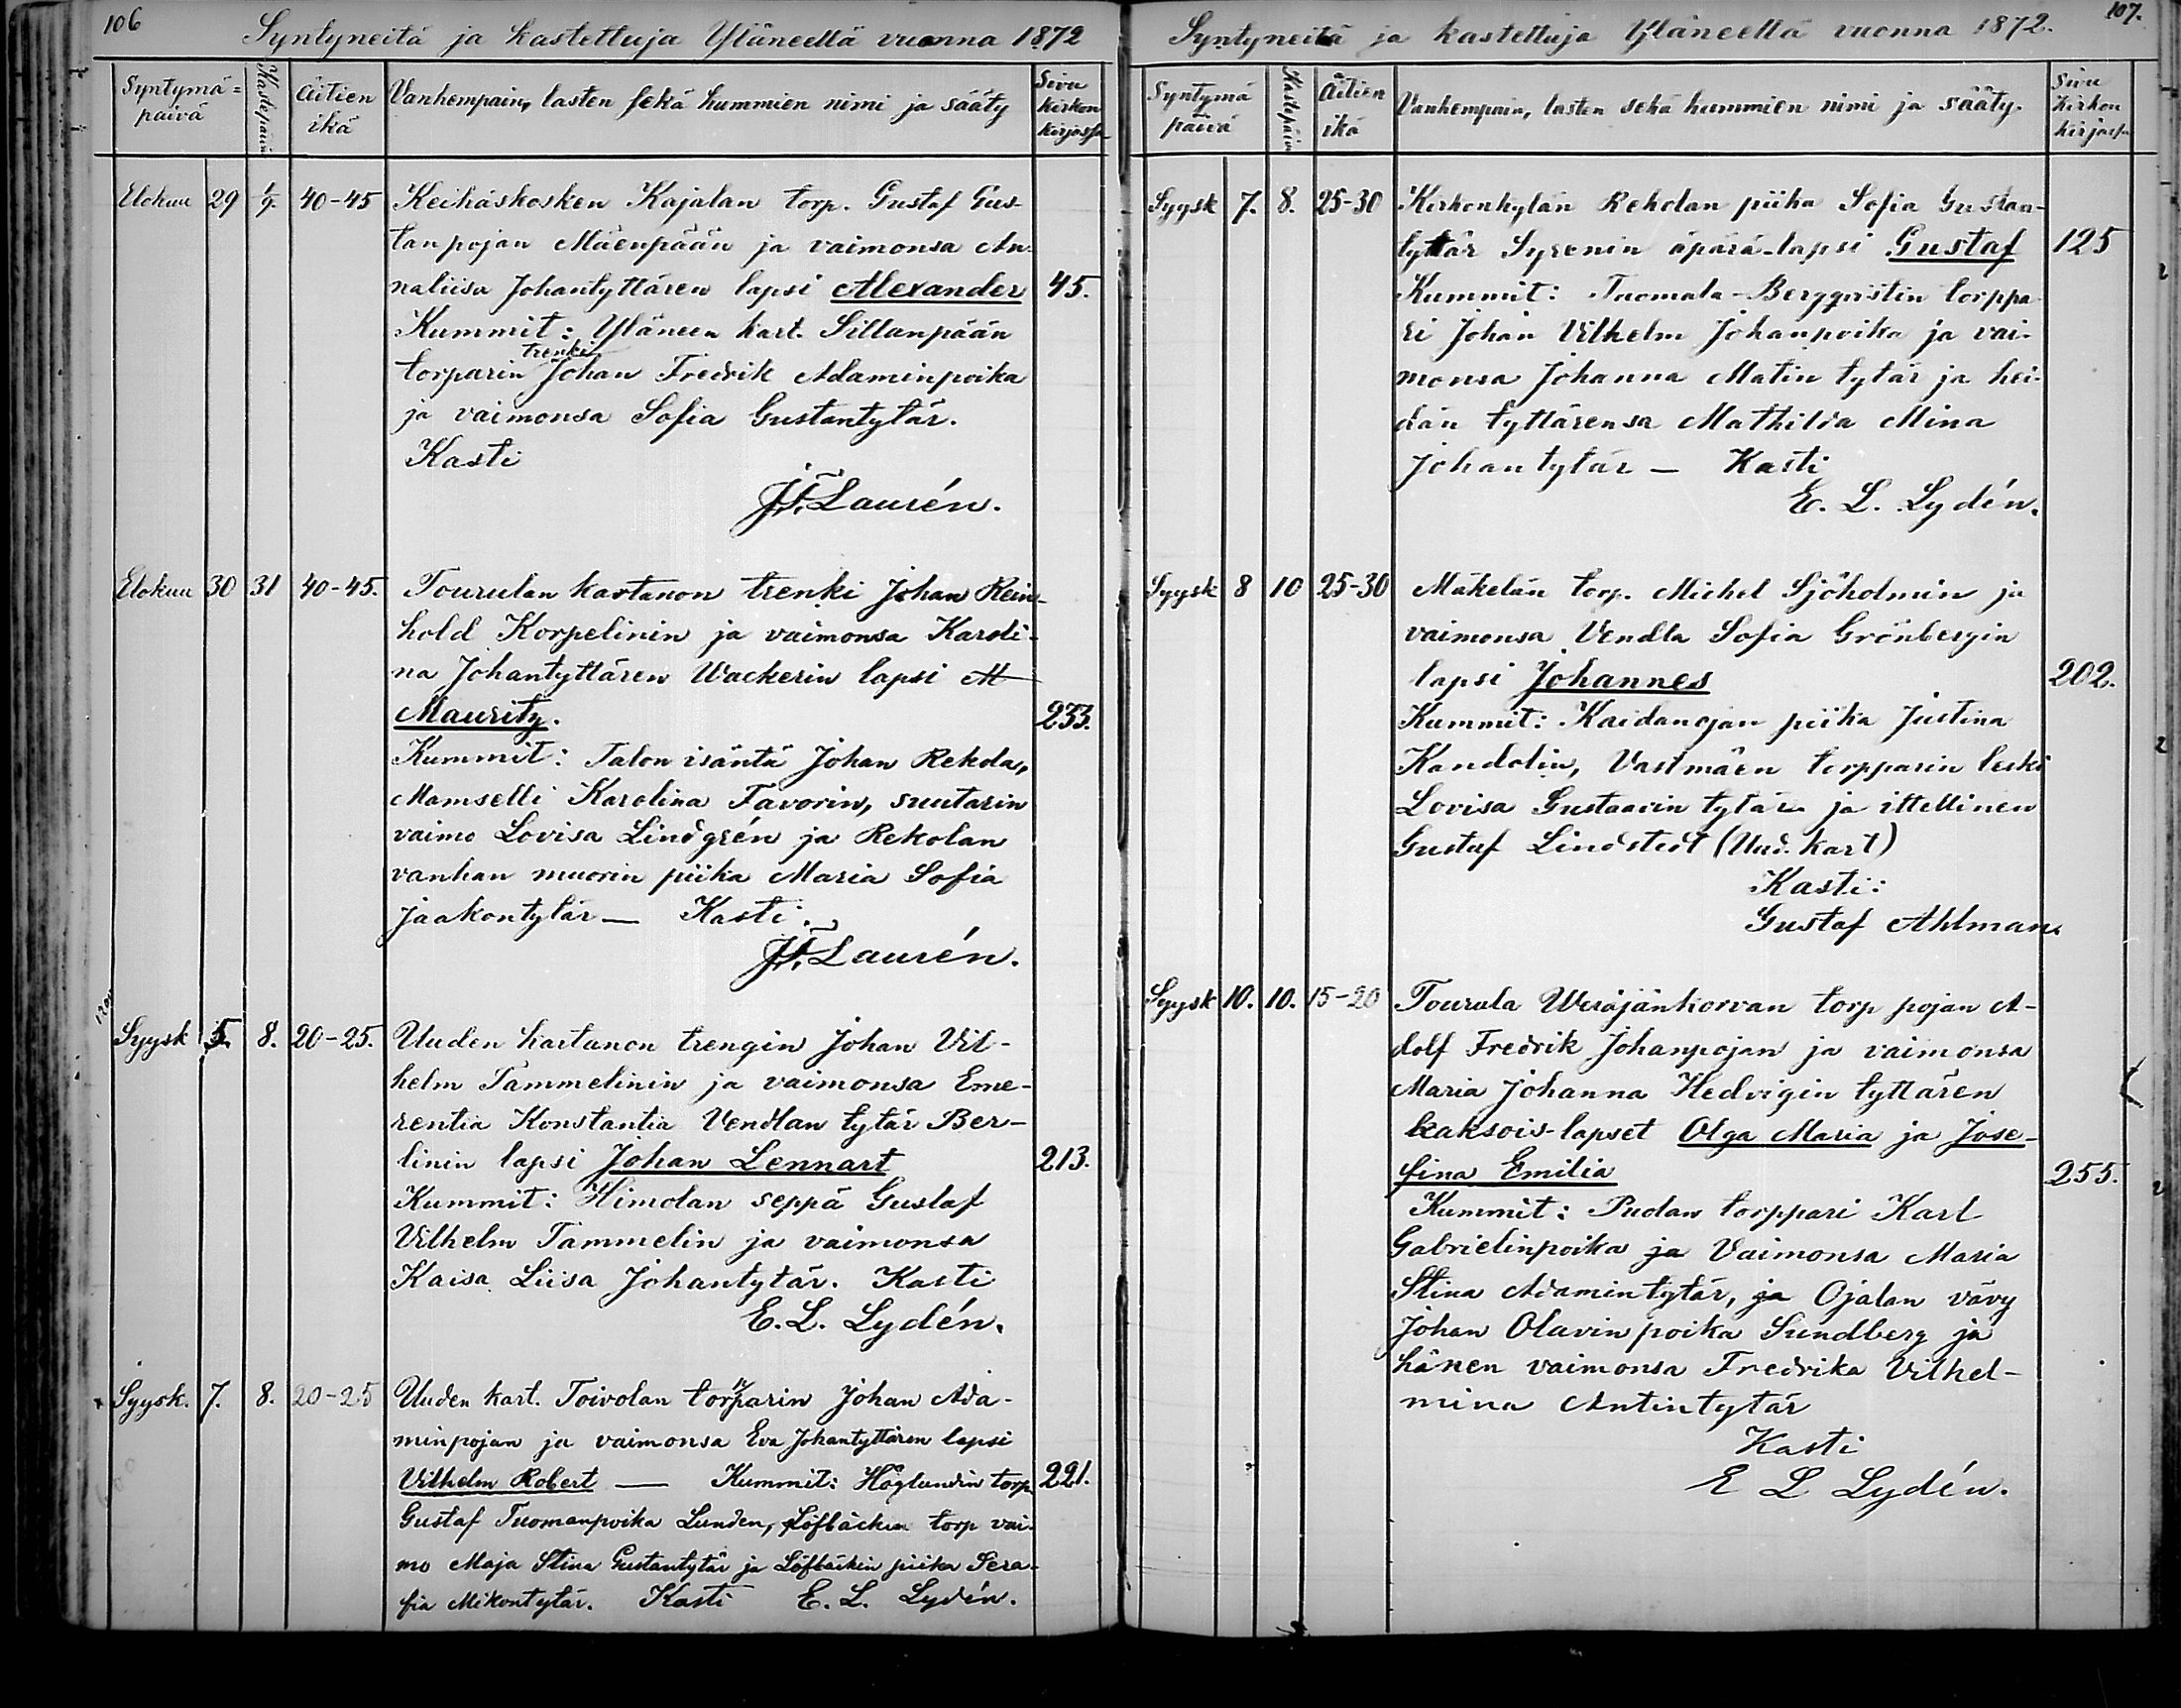 106
Syntyneitä ja kastettuja Yläneellä vuonna 1872
Syntymä=
päivä
Kastepäivä
Äitien
ikä
Vanhempain, lasten sekä kummien nimi ja sääty
Sivu
kirkon
kirjassa
Elokuu 29 1/9. 40-45 Keihäskosken Kajalan torp. Gustaf Gus-
tanpojan Mäenpään ja vaimonsa An-
naliisa Johantyttären lapsi Alexander 45.
Kummit: Yläneen kart. Sillanpään
trenki
torparin Johan Fredrik Adaminpoika
ja vaimonsa Sofia Gustantytär.
Kasti
J.F. Laurén.
Elokuu 30 31 40-45. Tourulan kartanon trenki Johan Rein-
hold Korpelinin ja vaimonsa Karoli-
na Johantyttären Wackerin lapsi M
Mauritz. 233.
Kummit: Talon isäntä Johan Rekola,
Mamselli Karolina Favorin, suutarin
vaimo Lovisa Lindgrén ja Rekolan
vanhan muorin piika Maria Sofia
Jaakontytär — Kasti:
J.F. Laurén.
Syysk 5. 8. 20-25. Uuden kartanon trengin Johan Vil-
helm Tammelinin ja vaimonsa Eme-
rentia Konstantia Vendlan tytär Ber-
linin lapsi Johan Lennart 213.
Kummit: Himolan seppä Gustaf
Vilhelm Tammelin ja vaimonsa
Kaisa Liisa Johantytär. Kasti
E. L. Lydén.
Syysk. 7. 8. 20-25 Uuden kart. Toivolan torparin Johan Ada-
minpojan ja vaimonsa Eva Johantyttären lapsi
Vilhelm Robert — Kummit: Höglundin torp. 221.
Gustaf Tuomanpoika Lunden, Löfbäckin torp vai-
mo Maja Stina Gustantytär ja Löfbäckin piika Sera-
fia Mikontytär. Kasti E. L. Lydén.
107.
Syntyneitä ja kastettuja Yläneellä vuonna 1872.
Syntymä
päivä
Kastepäivä
Äitien
ikä
Vanhempain, lasten sekä kummien nimi ja sääty.
Sivu
Kirkon
kirjassa
Syysk 7. 8. 25-30 Kirkonkylän Rekolan piika Sofia Gustaan-
tytär Syrenin äpärä-lapsi Gustaf 125
Kummit: Tuomala-Bergqvistin torppa-
ri Johan Vilhelm Johanpoika ja vai-
monsa Johanna Matin tytär ja hei-
dän tyttärensa Mathilda Mina
Johantytär — Kasti
E. L. Lydén.
Syysk 8 10 25-30 Mäkelän torp. Michel Sjöholmin ja
vaimonsa Vendla Sofia Grönbergin
lapsi Johannes 202.
Kummit: Kaidanojan piika Justina
Kandolin, Vastmäen torpparin leski
Lovisa Gustaavin tytär ja ittellinen
Gustaf Lindstedt (Uud. kart)
Kasti:
Gustaf Ahlman.
Syysk 10. 10. 15-20 Tourula Weräjänkorvan torp pojan A-
dolf Fredrik Johanpojan ja vaimonsa
Maria Johanna Hedvigin tyttären
kaksois-lapset Olga Maria ja Jose-
fina Emilia 255.
Kummit: Pudan torppari Karl
Gabrielinpoika ja Vaimonsa Maria
Stina Adamintytär, ja Ojalan vävy
Johan Olavin poika Sundberg ja
hänen vaimonsa Fredrika Vilhel-
mina Antintytär
Kasti
E L Lydén.